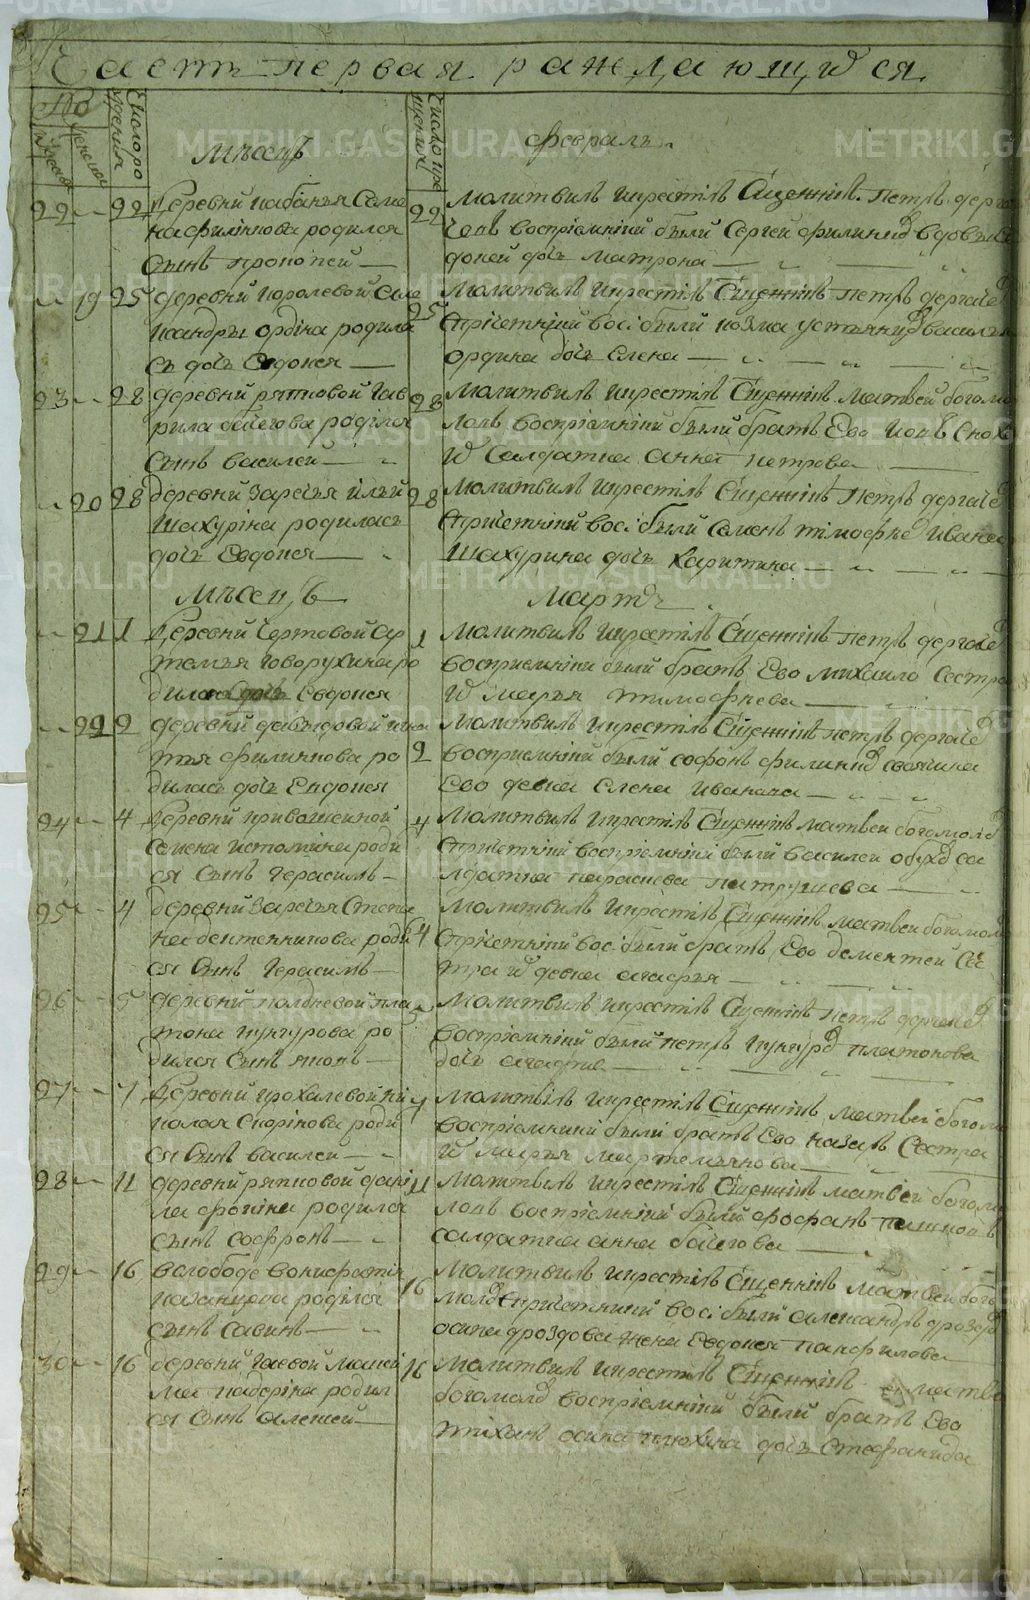 Часть первая раждающихся
Число рождения
Число крещения
Мѣсяцъ
февраль
22 22 деревни кабанья Семе
на филинкова родился
сынъ прокопей
22 Молитвилъ и крестилъ Сщенникъ Петръ дерга
чевъ восприемники были Сергей филинковъ вдовы
дочь матрона
19 25 деревни королевой Але
ксандры ордина родила
сь дочь Евдокея
25 Молитвилъ и крестилъ Сщенникъ петръ дергачевъ
спричетники вос: были козма устьянц василья
ордина дочь елена
23 28 деревни ряпковой гав
рила балегова родился
сынъ василей
28 Молитвилъ и крестилъ Сщенникъ матвей богомо
ловъ восприемники были братъ Ево
и салдатка анна петрова
20 28 деревни заречья ильи
шахурина родилась
дочь Евдокея
28 Молитвилъ и крестилъ Сщенникъ петръ дергачевъ
спричетники вос: были семенъ тимофеевъ ивана
шахурина дочь харитина
Мѣсецъ
мартъ
21 1 деревни чертовой ар
темья говорухина ро
дилась дочь Евдокея
1 Молитвилъ и крестилъ Сщенникъ петръ дергачевъ
восприемники были братъ Ево михаило сестра
и марья тимофеева
22 2 деревни давыдовой
филинкова ро
дилась дочь Евдокея
2 Молитвилъ и крестилъ Сщенникъ петръ дергачевъ
восприемники были софонъ филинковъ своячина
Ево девка елена иванова
24 4 деревни кривошеиной
семена истомина роди
ся сынъ герасимъ
4 Молитвилъ и крестилъ Сщенникъ матвеи богомоловъ
спричетники восприемники были василеи обуховъ са
лдатка парасковья патрушева
25 4 деревни заречья степа
на дектенникова роди
ся сынъ герасимъ
4 Молитвилъ и крестилъ Сщенникъ матвеи богомолов
спричетники вос: были братъ Ево дементей сес
тра и девка агафья
26 5 деревни полдневой пла
тона кунгурова ро
дился сынъ яковъ
5 Молитвилъ и крестилъ Сщенникъ петръ дергачевъ
восприемники были петръ кунгуровъ платонова
дочь агафия
27 7 деревни крохалевой ни
колая скорнкова роди
ся сынъ василеи
7 Молитвилъ и крестилъ Сщенникъ матвеи богомо
восприемники были братъ Ево назаръ сестра
и марья мартемьянова
28 11 деревни ряпковой дани
ла фокина родился
сынъ софронъ
11 Молитвилъ и крестилъ Сщенникъ матвей богомо
ловъ восприемники были
салдатка анна балегова
29 16 вслободе вонифатия
казанцова родился
сынъ савинъ
16 Молитвилъ и крестилъ Сщенникъ матвеи бого
моловъ спричетники вос: были александръ дроздов
осипа дроздова жена Евдокея панфилова
30 16 деревни гаевой макси
ма падерина родил
ся сынъ алексей
16 Молитвилъ и крестилъ Сщенникъ матвеи
богомоловъ восприемники были братъ Ево
тиханъ осипа дочь стефанида
METRIKI.GASO-URAL.RU